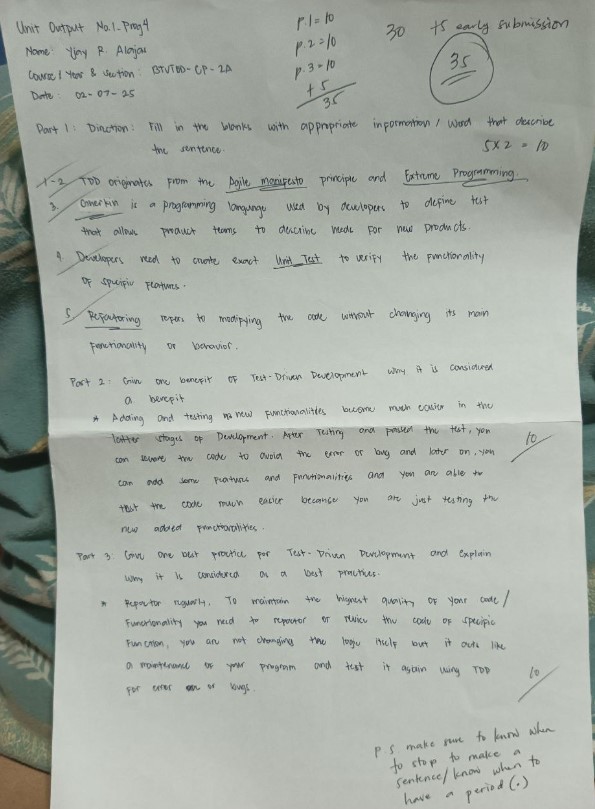 Unit Output No. 1 - Prog 4
Name: Yjay R. Alajas
Course / Year & Section: BTVTED - CP - 2A
Date: 02-07-25
p.1 = 10
p.2 = 10
p.3 = 10
+5
35
30 +5 early submission
35
Part 1: Direction: Fill in the blanks with appropriate information / word that describe
the sentence.
5 x 2 = 10
1-2 TDD originates from the Agile manifesto principle and Extreme Programming.
3. Gherkin is a programming language used by developers to define test
that allows product teams to describe needs for new products.
4. Developers need to create exact Unit Test to verify the functionality
of specific features.
5. Refactoring refers to modifying the code without changing its main
functionality or behavior.
Part 2: Give one benefit of Test-Driven Development why it is considered
a benefit
* Adding and testing new functionalities become much easier in the
latter stages of Development. After Testing and passed the test, you
can the code to avoid the error or bug and later on, you
can add some features and functionalities and you are able to
test the code much easier because you are just testing the
new added functionalities.
10
Part 3: Give one best practice for Test-Driven Development and explain
why it is considered as a best practices.
* Refactor reguarly. To maintain the highest quality of your code /
Functionality you need to refactor or the code of specific
Function, you are not changing the logic itself but it acts like
a maintenance of your program and test it again using TDD
for error or bugs.
10
P.S make sure to know when
to stop to make a
sentence/know when to
have a period (.)